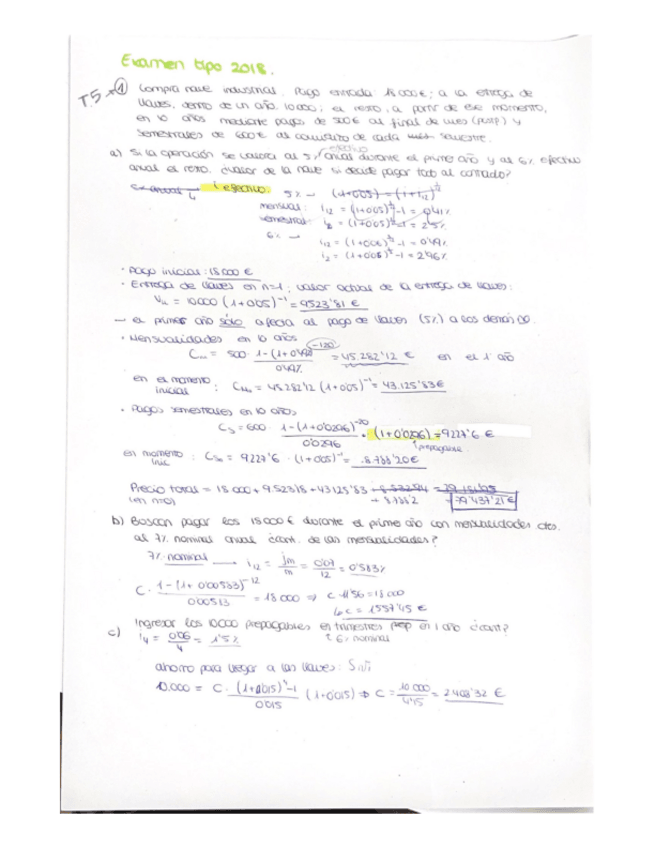 Examen tipo 2018.
T.5 → ① Compra nave industrial. Pago entrada 18000€; a la entrega de
llaves, dentro de un año. 10000; el resto, a partir de ese momento,
en 10 años mediante pagos de 500€ al final de mes (postp) y
semestrales de 600€ al comienzo de cada semestre.
efectivo
a) Si la operación se valora al 5% anual durante el primer año y al 6% efectivo
anual el resto. ¿valor de la nave si decide pagar todo al contado?
i efectivo
5% — (1+0'05) = (1+i12)
mensual: i12 = (1+0'05) -1 = 0'41%
semestral: i2 = (1+0'05) -1 = 2'5%
6% — i12 = (1+0'06) -1 = 0'49%
i2 = (1+0'06) -1 = 2'96%
· Pago inicial: 18000 €
· Entrega de llaves en n=1; valor actual de la entrega de llaves:
= 10000 (1+0'05)⁻¹ = 9523'81 €
— el primer año sólo afecta al pago de llaves (5%) a los demás no.
· Mensualidades en 10 años
= 500 · 1-(1+0'49%)⁻¹²⁰ / 0'49% = 45.282'12 € en el 1 año
en el momento inicial : = 45.282'12 (1+0'05)⁻¹ = 43.125'83€
· Pagos semestrales en 10 años
= 600 · 1-(1+0'0296)⁻²⁰ / 0'0296 · (1+0'0296) = 9227'6 €
prepagable
en momento inic : = 9227'6 · (1+0'05)⁻¹ = 8.788'20€
Precio total = 18000 + 9.523'8 + 43125'83
(en n=0) + 8788'2 79'437'21€
b) Buscan pagar los 18000€ durante el primer año con mensualidades ctes.
al 7% nominal anual ¿cant. de las mensualidades?
7% nominal → i12 = jm/m = 0'07/12 = 0'583%
C · 1-(1+0'00583)⁻¹² / 0'00583 = 18000 ⇒ C · 11'56 = 18000
↳ C = 1557'45 €
c) Ingresar los 10000 prepagables en trimestres en 1 año ¿cant?
i4 = 0'06/4 = 1'5% 6% nominal
ahorro para llegar a las llaves:
10.000 = C · (1+0'015)⁴-1 / 0'015 (1+0'015) ⇒ C = 10.000/4'15 = 2408'32 €